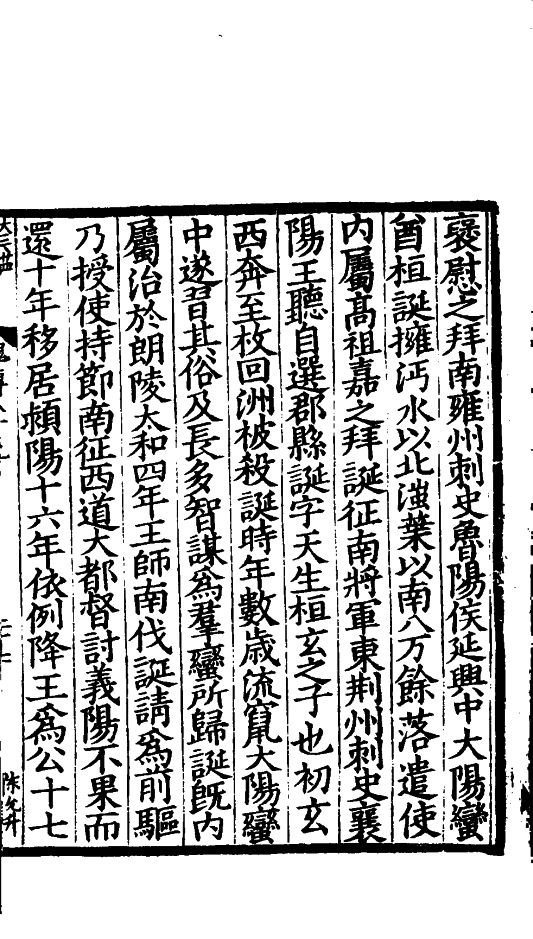 襃慰之拜南雍州刺史魯陽侯延興中大陽蠻
酋桓誕擁沔水以北滍葉以南八万餘落遣使
内屬高祖嘉之拜誕征南將軍東荆州刺史襄
陽王聽自選郡縣誕字天生桓玄之子也初玄
西奔至枚回洲被殺誕時年數歲流竄大陽蠻
中遂習其俗及長多智謀爲羣蠻所歸誕旣内
屬治於朗陵太和四年王師南伐誕請爲前驅
乃授使持節南征西道大都督討義陽不果而
還十年移居潁陽十六年依例降王爲公十七